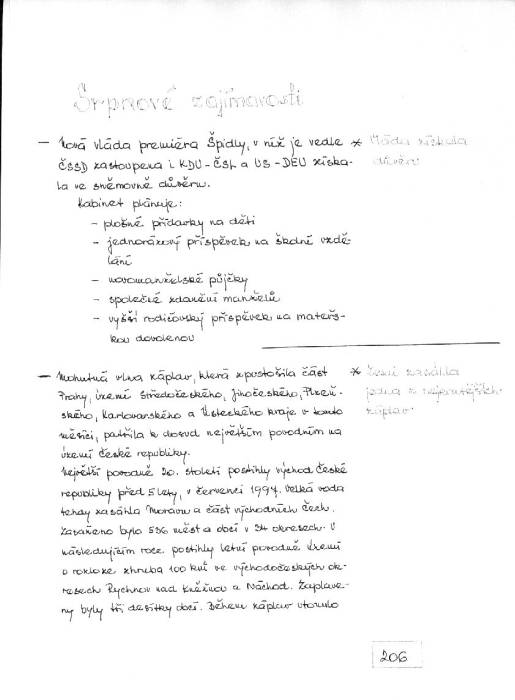 Srpnové zajímavosti
— Nová vláda premiéra Špidly, v níž je vedle
ČSSD zastoupena i KDU-ČSL a US-DEU získa-
la ve sněmovně důvěru.
* Vláda získala
důvěru
Kabinet plánuje:
– plošné přídavky na děti
– jednorázový příspěvek na školní vzdě-
lání
– novomanželské půjčky
– společné zdanění manželů
– vyšší rodičovský příspěvek na mateřs-
kou dovolenou
— Mohutná vlna záplav, která zpustošila část
Prahy, území Středočeského, Jihočeského, Plzeň-
ského, Karlovarského a Ústeckého kraje v tomto
měsíci, patřila k dosud největším povodním na
území České republiky.
* Zemi zasáhla
jedna z nejhorších
záplav
Největší povodně 20. století postihly východ České
republiky před 5 lety, v červenci 1997. Velká voda
tehdy zasáhla Moravu a část východních Čech.
Zasaženo bylo 536 měst a obcí v 34 okresech. V
následujícím roce postihly letní povodně území
o rozloze zhruba 100 km² ve východočeských ok-
resech Rychnov nad Kněžnou a Náchod. Zaplave-
ny byly tři desítky obcí. Během záplav utonulo
206